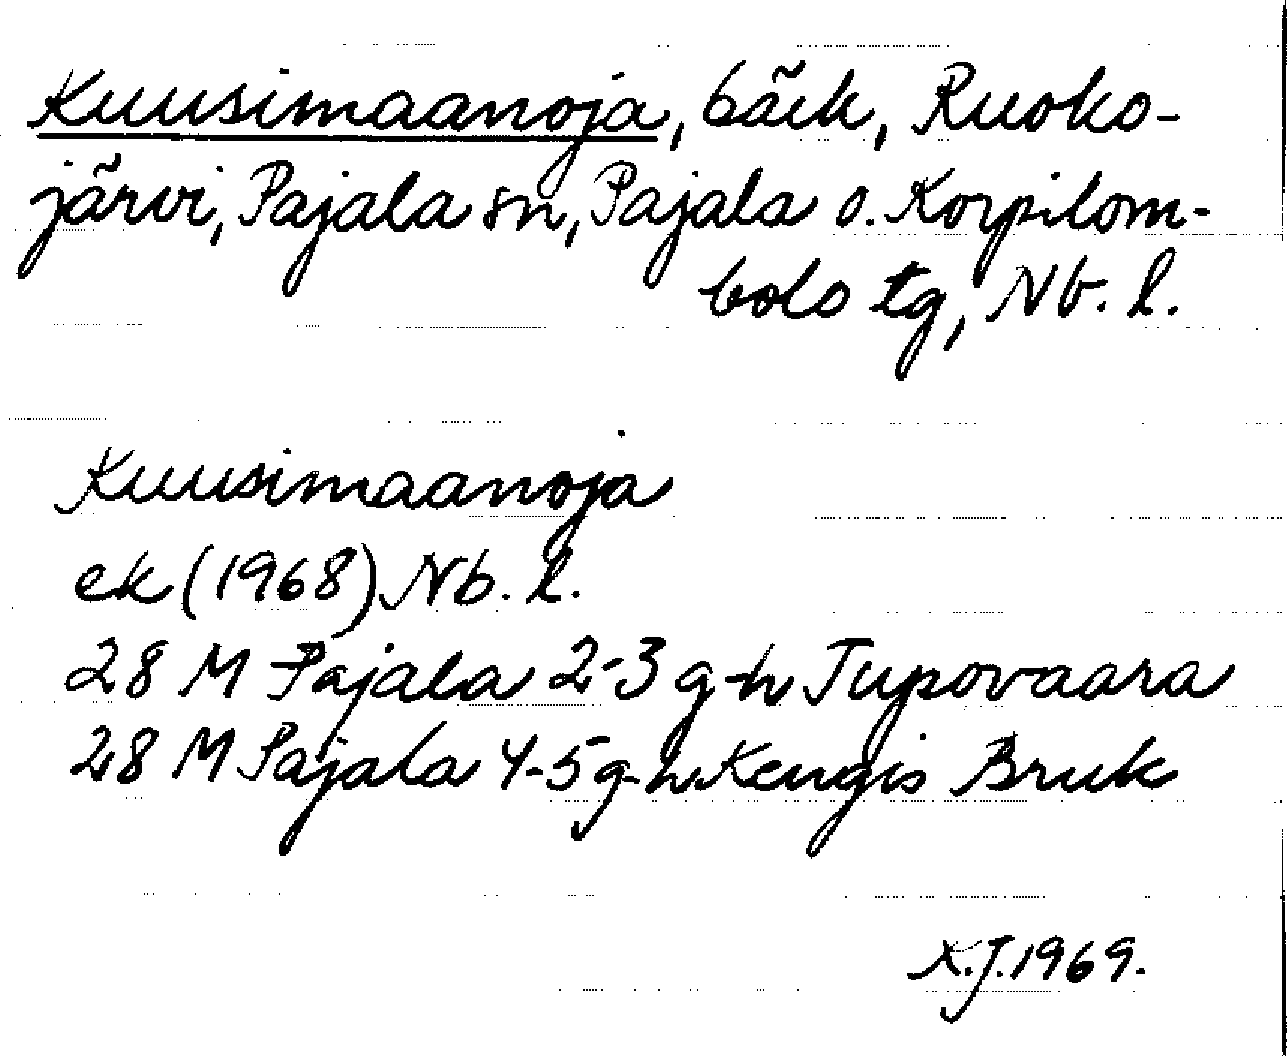 Kuusimaanoja, bäck, Ruoko-
järvi, Pajala sn, Pajala o. Korpilom-
bolo tg, Nb. l.
Kuusimaanoja
ek (1968) Nb. l.
28 M Pajala 2-3 g-h Jupovaara
28 M Pajala 4-5 g-h Kengis Bruk
K.J. 1969.